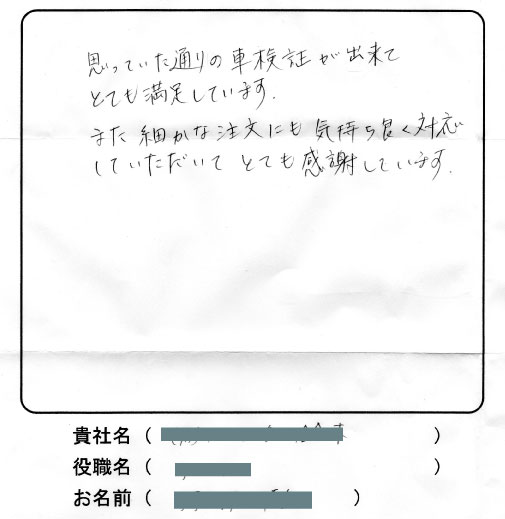 思っていた通りの車検証が出来て
とても満足しています.
また細かな注文にも気持ち良く対応
していただいてとても感謝しています.
貴社名（ ）
役職名（ ）
お名前（ ）